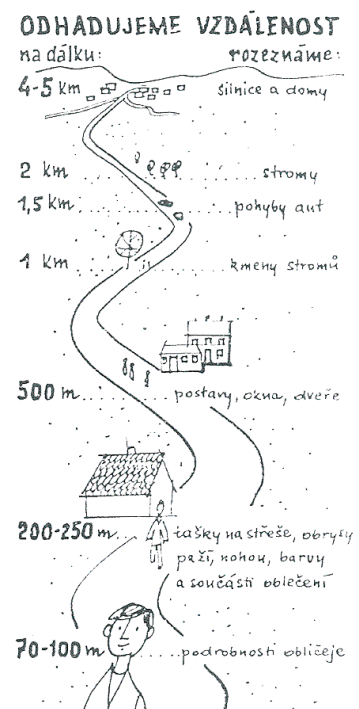 ODHADUJEME VZDÁLENOST
na dálku: rozeznáme:
4-5 km silnice a domy
2 km stromy
1,5 km pohyby aut
1 km kmeny stromů
500 m postavy, okna, dveře
200-250 m tašky na střeše, obrysy
paží, nohou, barvy
a součásti oblečení
70-100 m podrobnosti obličeje